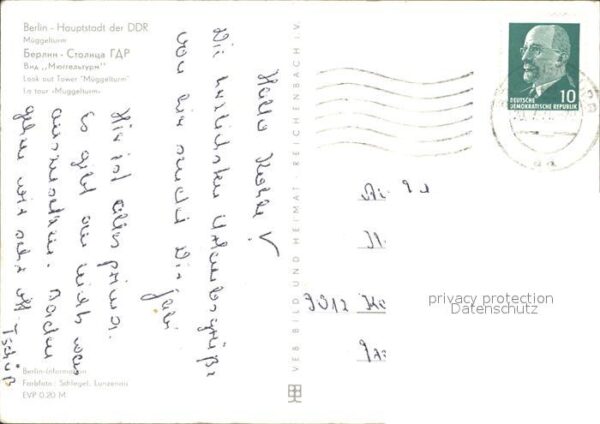 Berlin - Hauptstadt der DDR
Müggelturm
Берлин - Столица ГДР
Вид „Мюггельтурм"
Look out Tower "Müggelturm"
La tour «Müggelturm»
Hallo
Die herzlichsten Urlaubsgrüße
von hier sendet Dir
Hier ist alles prima.
Es gibt an nichts was
auszusetzen. Baden
gehen wir sehr oft. Tschüß
Berlin-Information
Farbfoto: Schlegel, Lunzenau
EVP 0,20 M
VEB BILD UND HEIMAT · REICHENBACH i. V.
DEUTSCHE
DEMOKRATISCHE REPUBLIK
10
9012
privacy protection
Datenschutz